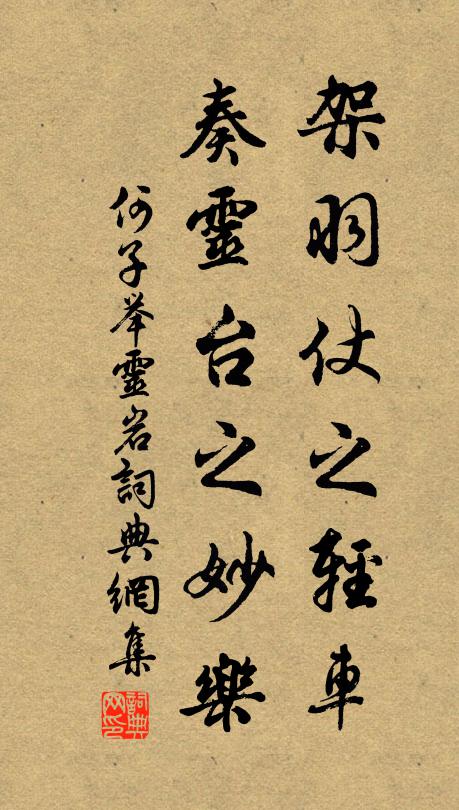 架羽仗之輕車
奏靈台之妙樂
何子举靈岩詞典網集
詞典
网印